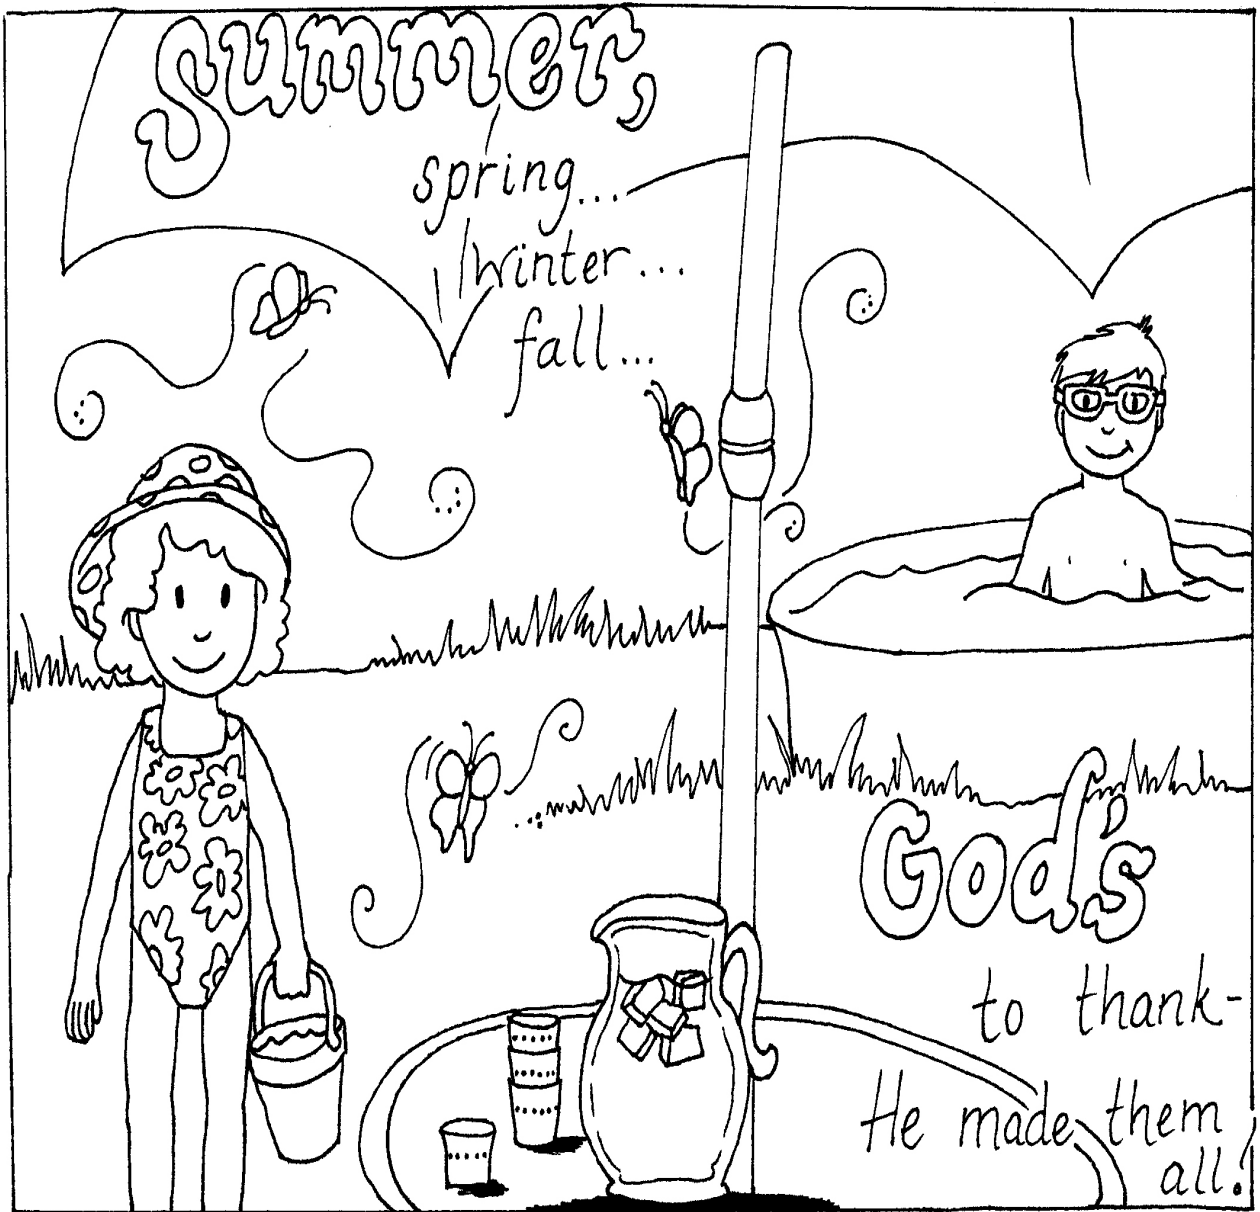 Summer,
spring...
Winter...
fall...
God's
to thank-
He made them
all!